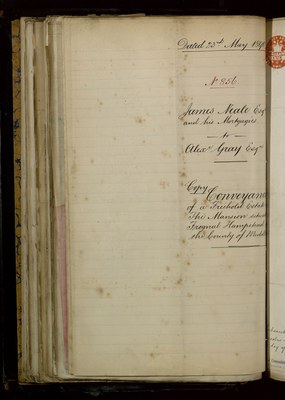 Dated 23rd May 189
No 836
James Neale Esqr
and his Mortgagees
to
Alexr Gray Esqr
Copy
Conveyanc
of a Freehold Estat
The Mansion
Frognal Hampstead
the County of Middl